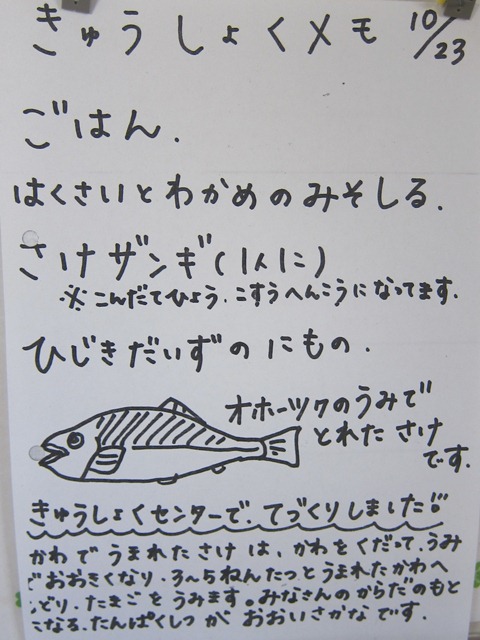 きゅうしょくメモ 10/23
ごはん.
はくさいとわかめのみそしる.
さけザンギ(1人1こ)
※こんだてひょう.こすうへんこうになってます.
ひじきだいずのにもの.
オホーツクのうみで
とれたさけ
です.
きゅうしょくセンターで.てづくりしました!!
かわでうまれたさけは、かわをくだって、うみ
でおおきくなり.3〜5ねんたつとうまれたかわへ
どり.たまごをうみます。みなさんのからだのもと
になる.たんぱくしつがおおいさかなです.